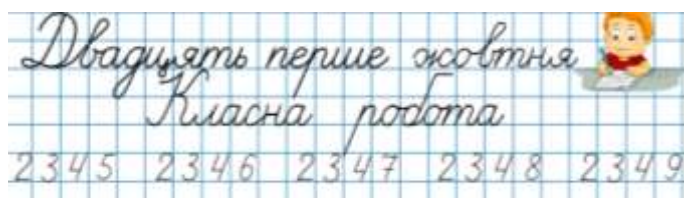 Двадцять перше жовтня
Класна робота
2345 2346 2347 2348 2349